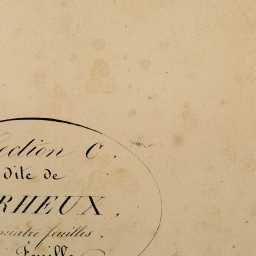 ection C.
dite de
RHEUX.
uatre feuilles.
Feuille